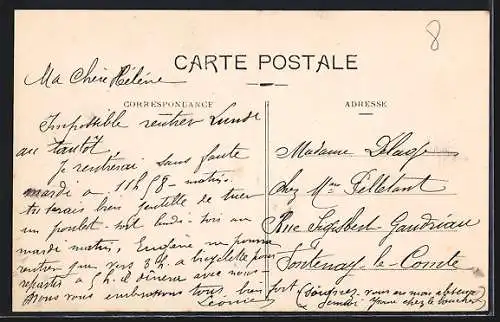 8
CARTE POSTALE
Ma Chère Hélène
CORRESPONDANCE
ADRESSE
Impossible rentrer Lundi
au tantôt,
Je rentrerai sans faute
mardi a 11h58 - matin.
tu serais bien gentille de tuer
un poulet soit lundi soir ou
mardi matin, Eugène ne pourra
rentrer que vers 3h. a bicyclette pour
repartir a 5h. il dînera avec nous
Nous vous embrassons tous bien fort
Léonie
Madame
chez Mme Pelletant
Rue Sigisbert Gaudriau
Fontenay-le-Comte
(Soignez vous en mon absence
chez le boucher)